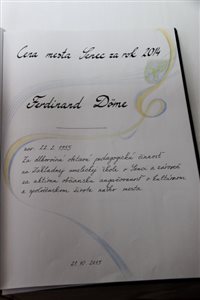 Cena mesta Senec za rok 2014
Ferdinand Döme
nar. 22. 2. 1955
Za dlhoročnú obetavú pedagogickú činnosť
na Základnej umeleckej škole v Senci a zároveň
za aktívnu občiansku angažovanosť v kultúrnom
a spoločenskom živote nášho mesta
21. 10. 2015